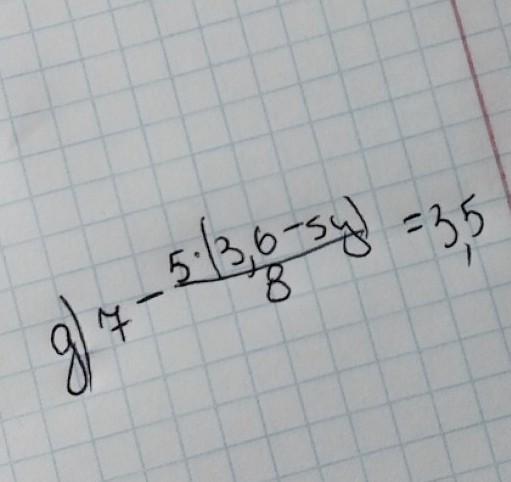 д) 7 - 5·(3,6-5y)/8 = 3,5